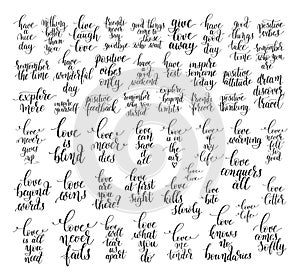 have a nice day
live laugh love
friends never say goodbye
good things come to those who wait
give love away
good things take time
positive vibes
remember the time
have a wonderful day
positive vibes only
have a good weekend
have fun
inspire someone today
positive attitude
remember why you started
dream discover travel
explore more
positive feelings
explore beyond limits
positive thinking
love never gives up
love is blind
love never dies
love can save it all
love is in the air
love never
love warning
love conquers all
love beyond words
love wins
love are you there?
love at first sight
love kills slowly
love life
love bite
love is all you need
love never fails
love will tear us apart
love what you do
love me tender
love knows no boundaries
love comes softly